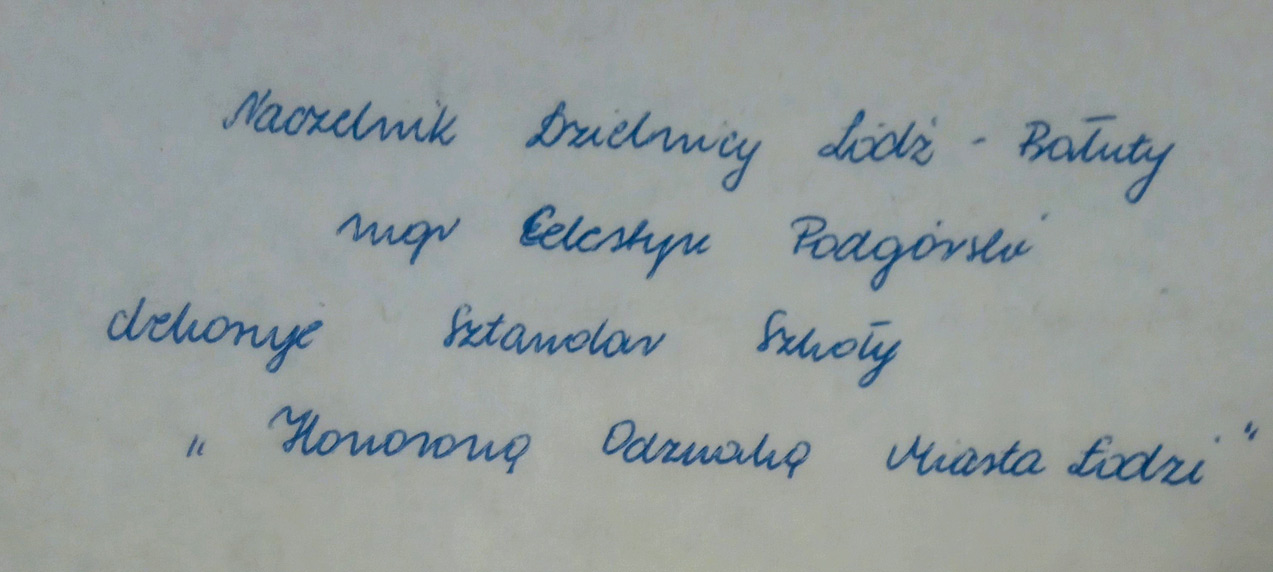 Naczelnik Dzielnicy Łódź - Bałuty
mgr Celestyn Podgórski
dekoruje Sztandar Szkoły
„ Honorową Odznaką Miasta Łodzi "